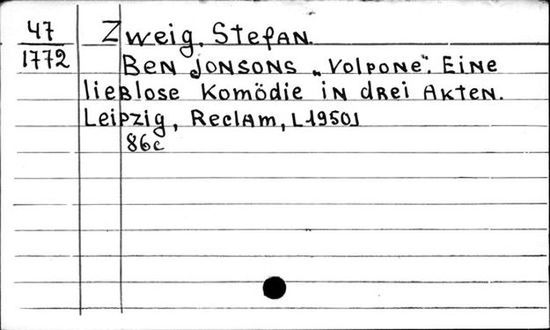 47 Zweig, Stefan.
1772 Ben Jonsons „Volpone“. Eine
lieblose Komödie in drei Akten.
Leipzig, Reclam, [1950]
86c